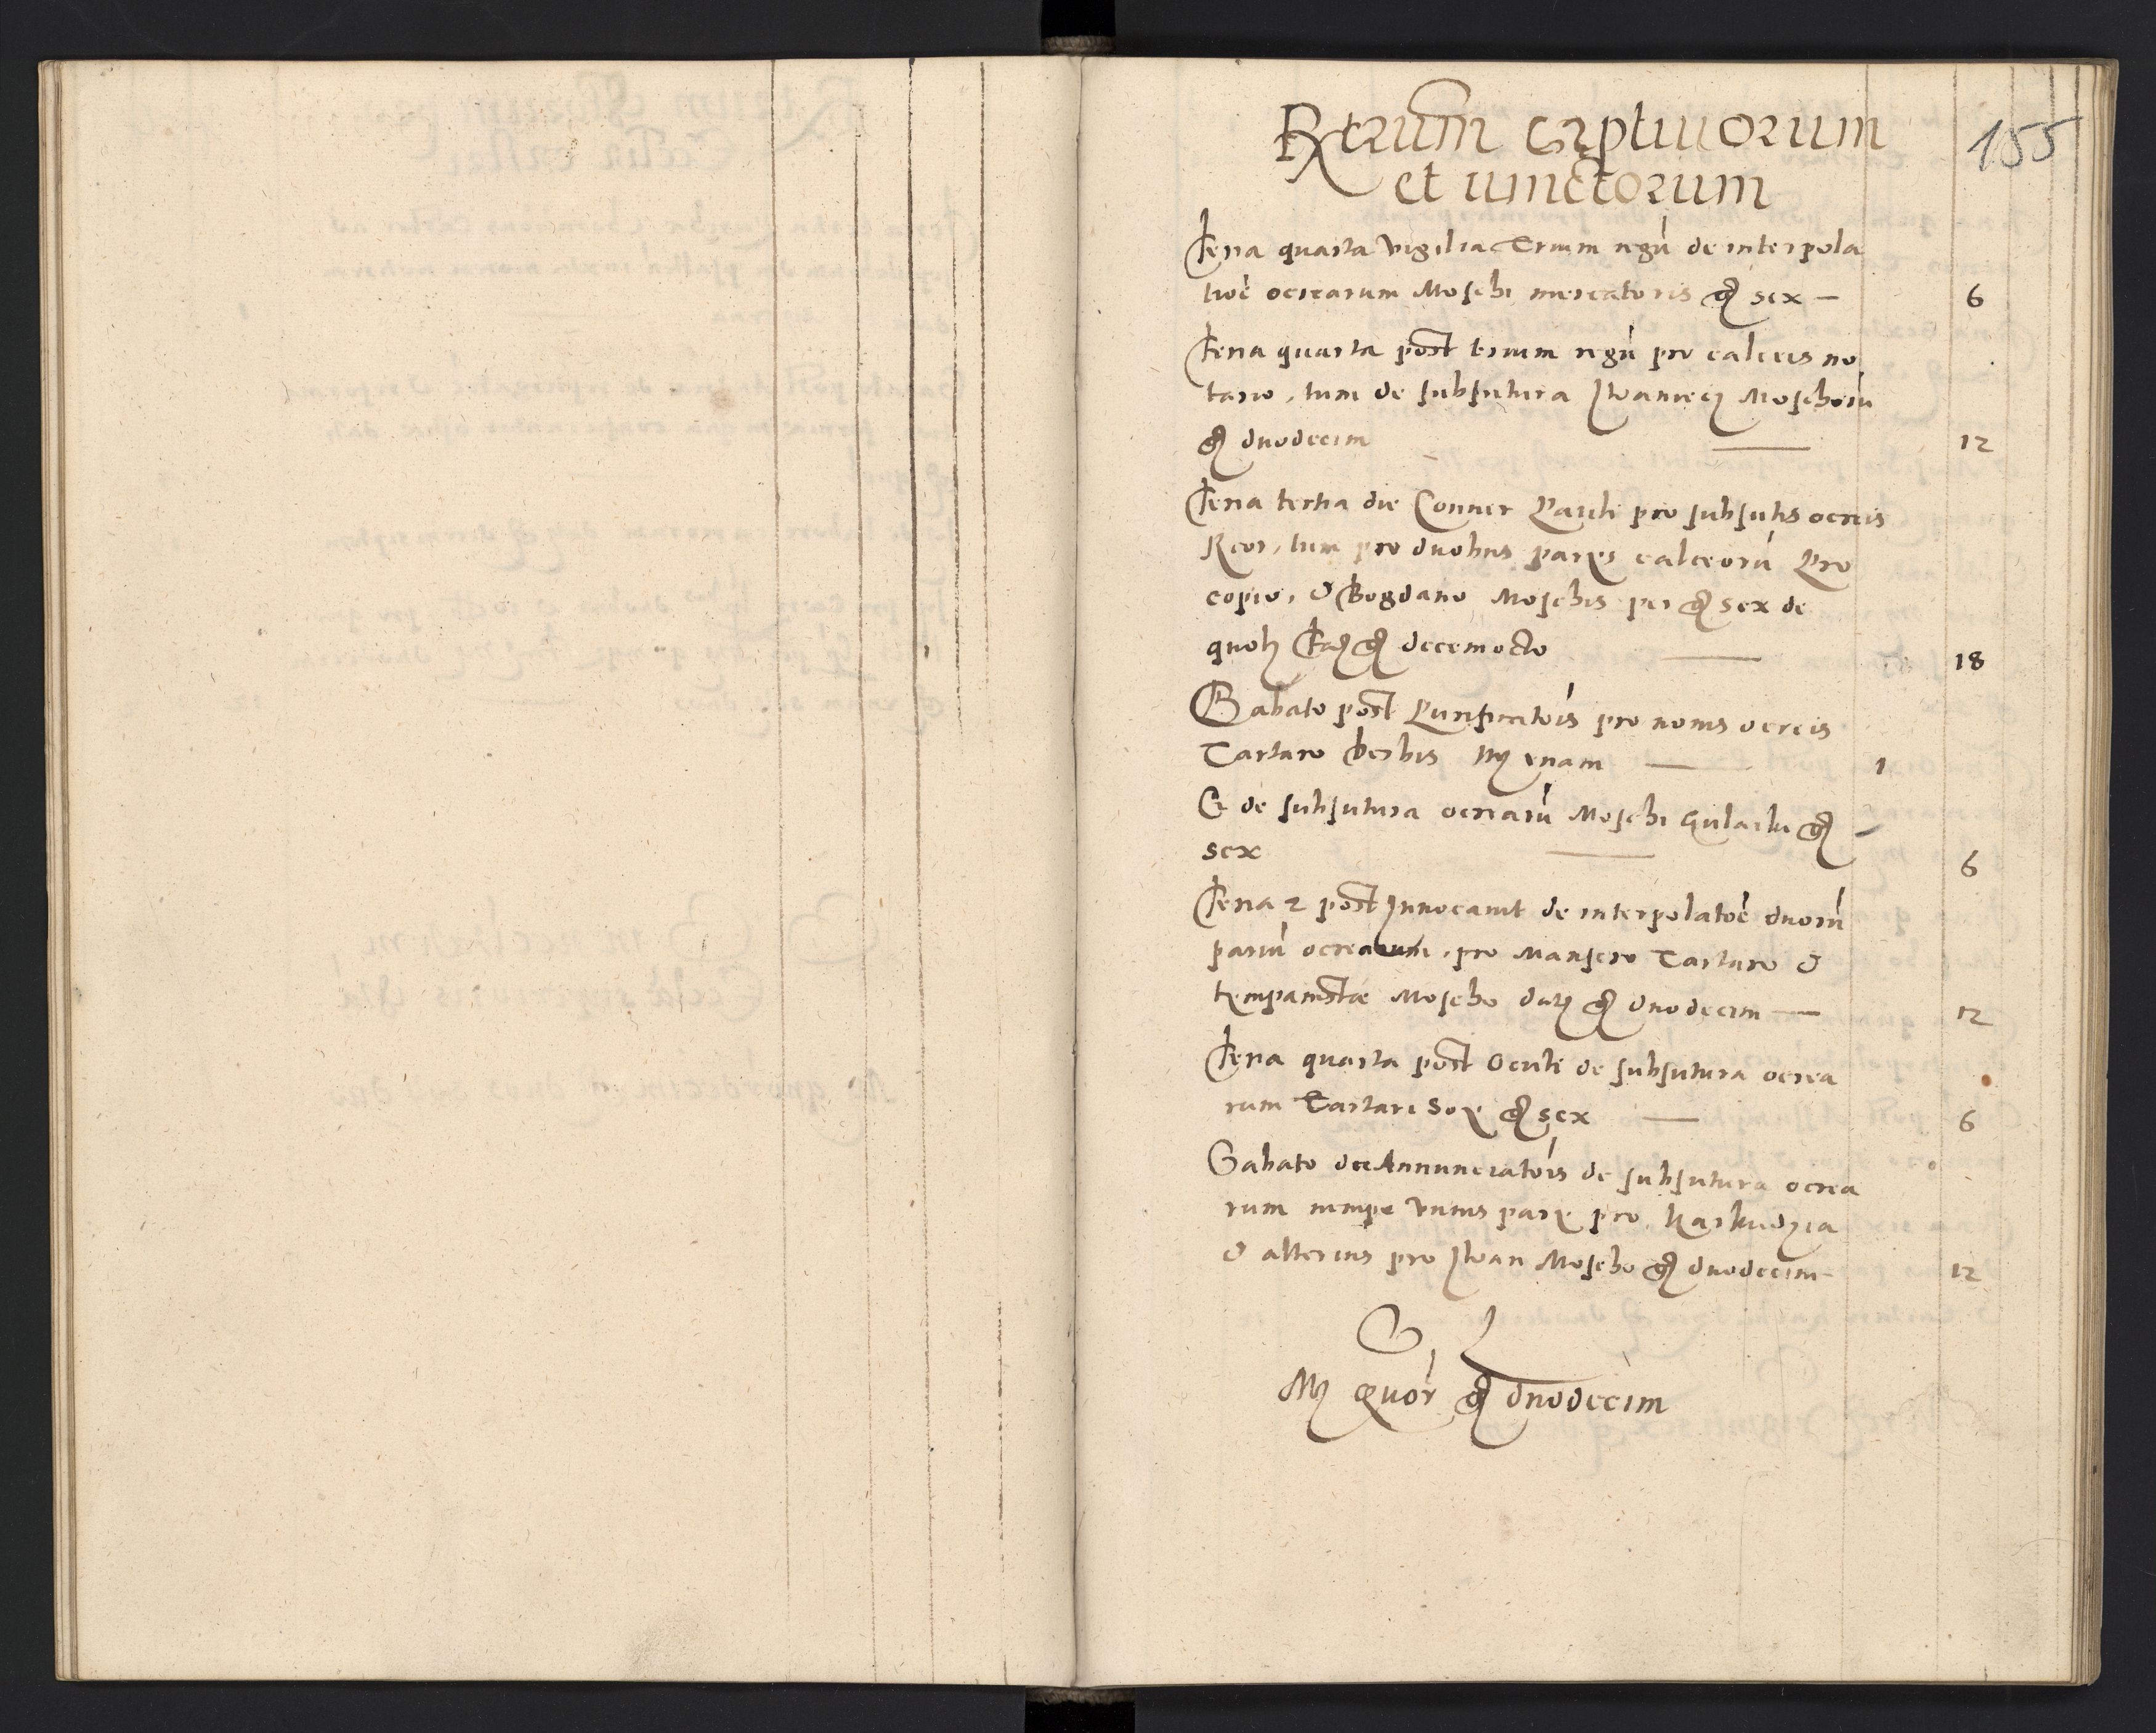 Rerum captiuorum
155
et uinctorum
Feria quarta vigilia Trium regū de interpola
tioē ocrearum Moschi mercatoris gͬ sex — 6
Feria quarta post trium regū pro calceis no
tario, tum de subsutura Iwaniecz Moschorū
gͬ duodecim — 12
Feria tertia die Conuer Pauli pro subsutis ocreis
Reor, tum pro duobus parib calceorū Pro
copio, & Bogdano Moschis per gͬ sex de
quolz facͭ gͬ decemocto — 18
Sabato post Purificatōis pro nouis ocreis
Tartaro Mͬ vnam — 1
Et de subsutura ocrearū Moschi gͬ -
sex — 6
Feria 2 post Inuocauit de interpolatoē duorū
pariū ocrearum, pro Mansero Tartaro &
tympanistae Moscho datͭ gͬ duodecim — 12
Feria quarta post Oculi de subsutura ocrea
rum Tartari gͬ sex — 6
Sabato die Annunciatōis de subsutura ocrea
rum nempe vnius paris pro
& alterius pro Iwan Moscho gͬ duodecim - 12
S L
Mͬ quor gͬ duodecim